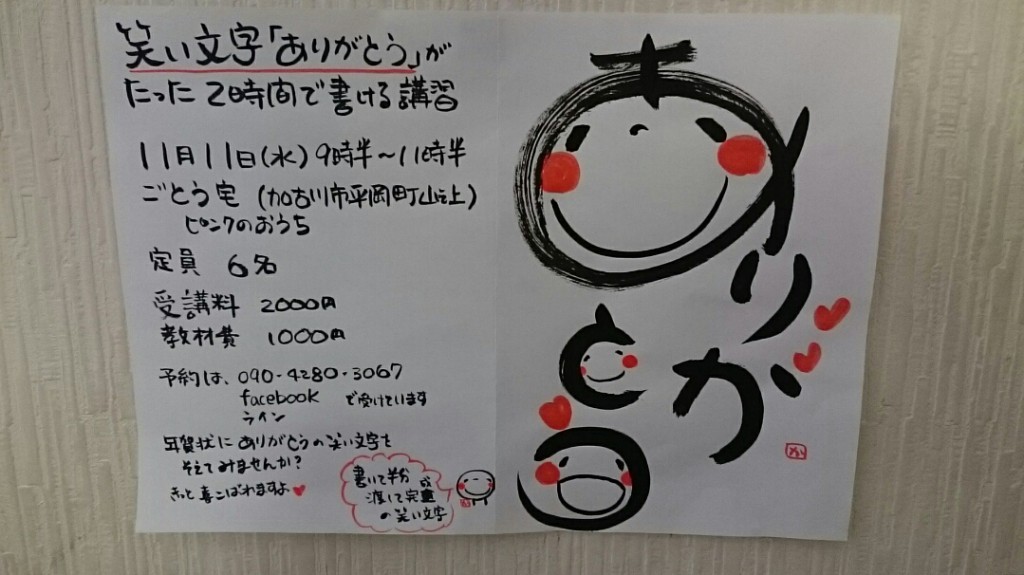 笑い文字「ありがとう」が
たった2時間で書ける講習
11月11日(水) 9時半〜11時半
ごとう宅 (加古川市平岡町山之上)
ピンクのおうち
定員 6名
受講料 2000円
教材費 1000円
予約は、090-4280-3067
facebook で受けています
ライン
年賀状に ありがとうの笑い文字を
そえてみませんか?
きっと喜こばれますよ
書いて半分
渡して完成
の笑い文字
ありがとう
か